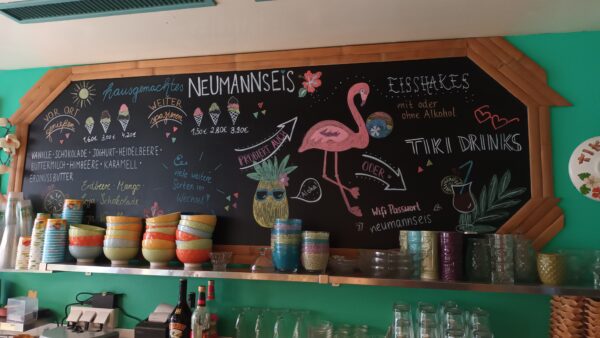 hausgemachtes NEUMANNSEIS
VOR ORT
genießen
1,60€ 3,00€ 4,20€
WEITER
spazieren
1,50€ 2,80€ 3,90€
VANILLE · SCHOKOLADE · JOGHURT-HEIDELBEERE ·
BUTTERMILCH-HIMBEERE · KARAMELL ·
ERDNUSSBUTTER
Erdbeere Mango
Schokolade
viele weitere
Sorten im
Wechsel!
PROBIERT ALLE
aloha
ODER
EISSHAKES
mit oder
ohne Alkohol
TIKI DRINKS
Wifi Passwort
neumannseis